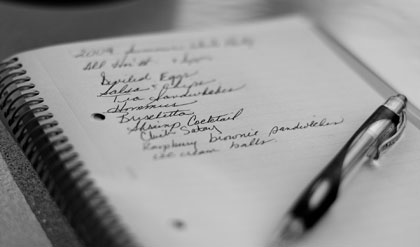 2009 Summer White Party
All Finger Apps
Deviled Eggs
Salsa + Chips
Tea Sandwiches
Hommus
Bruscetta
Shrimp Cocktail
Chick Satay
Raspberry brownie sandwiches
ice cream balls.